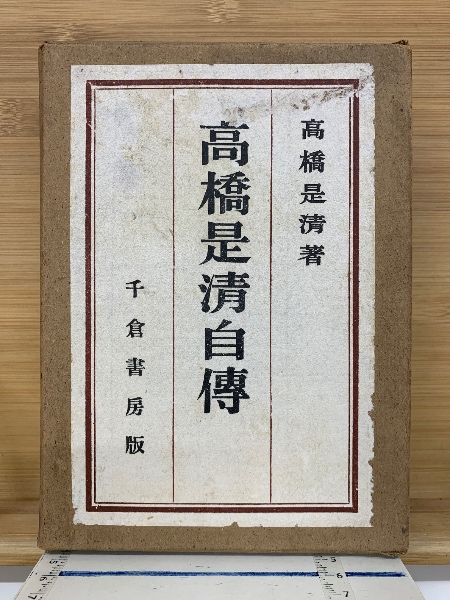 高橋是清著
高橋是清自傳
千倉書房版